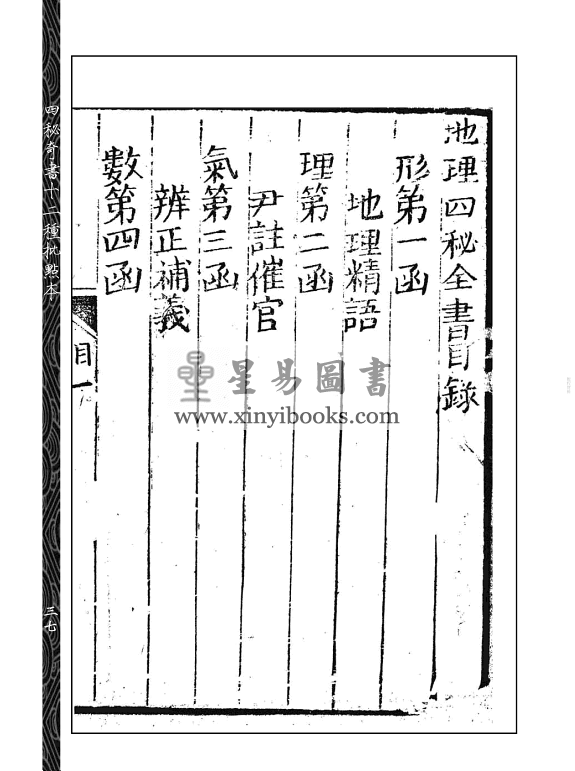 地理四秘全書目錄
形第一函
地理精語
理第二函
尹註催官
氣第三函
辨正補義
數第四函
目一
四秘奇書十二種批點本
三七
星易圖書
www.xinyibooks.com